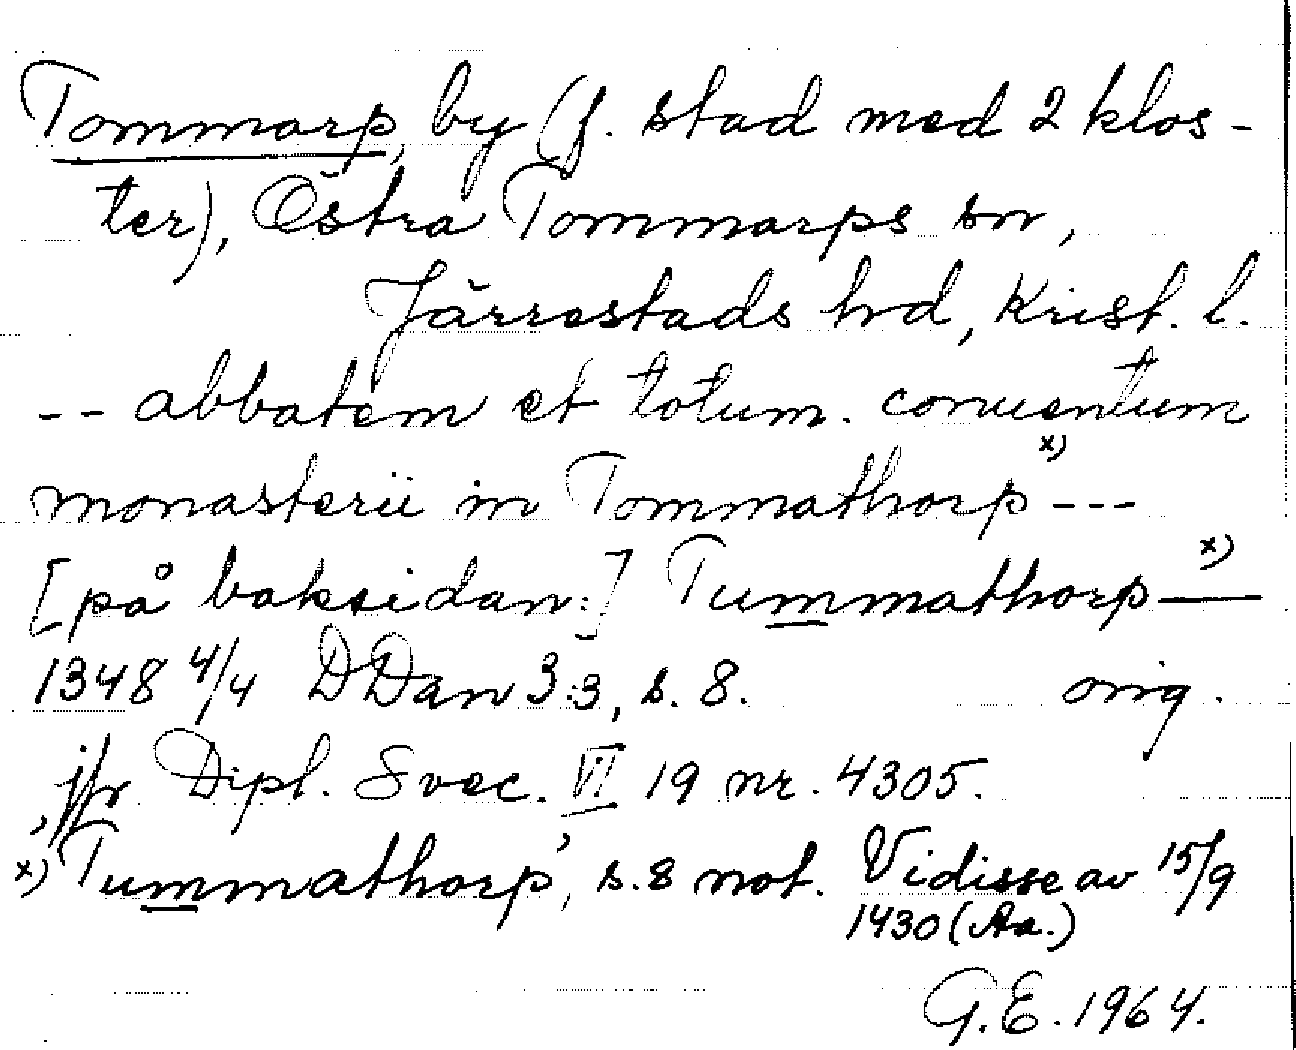 Tommarp, by (f. stad med 2 klos-
ter), Östra Tommarps sn,
Järrestads hd, Krist. l.
-- abbatem et totum. conuentum
monasterii in Tommathorp x) ---
[på baksidan:] Tummathorp x) —
1348 4/4 DDan 3:3, s. 8. orig.
jfr Dipl. Svec. VI 19 nr. 4305.
x) 'Tummathorp', s. 8 not. Vidisse av 15/9
1430 (Aa.)
G.E. 1964.